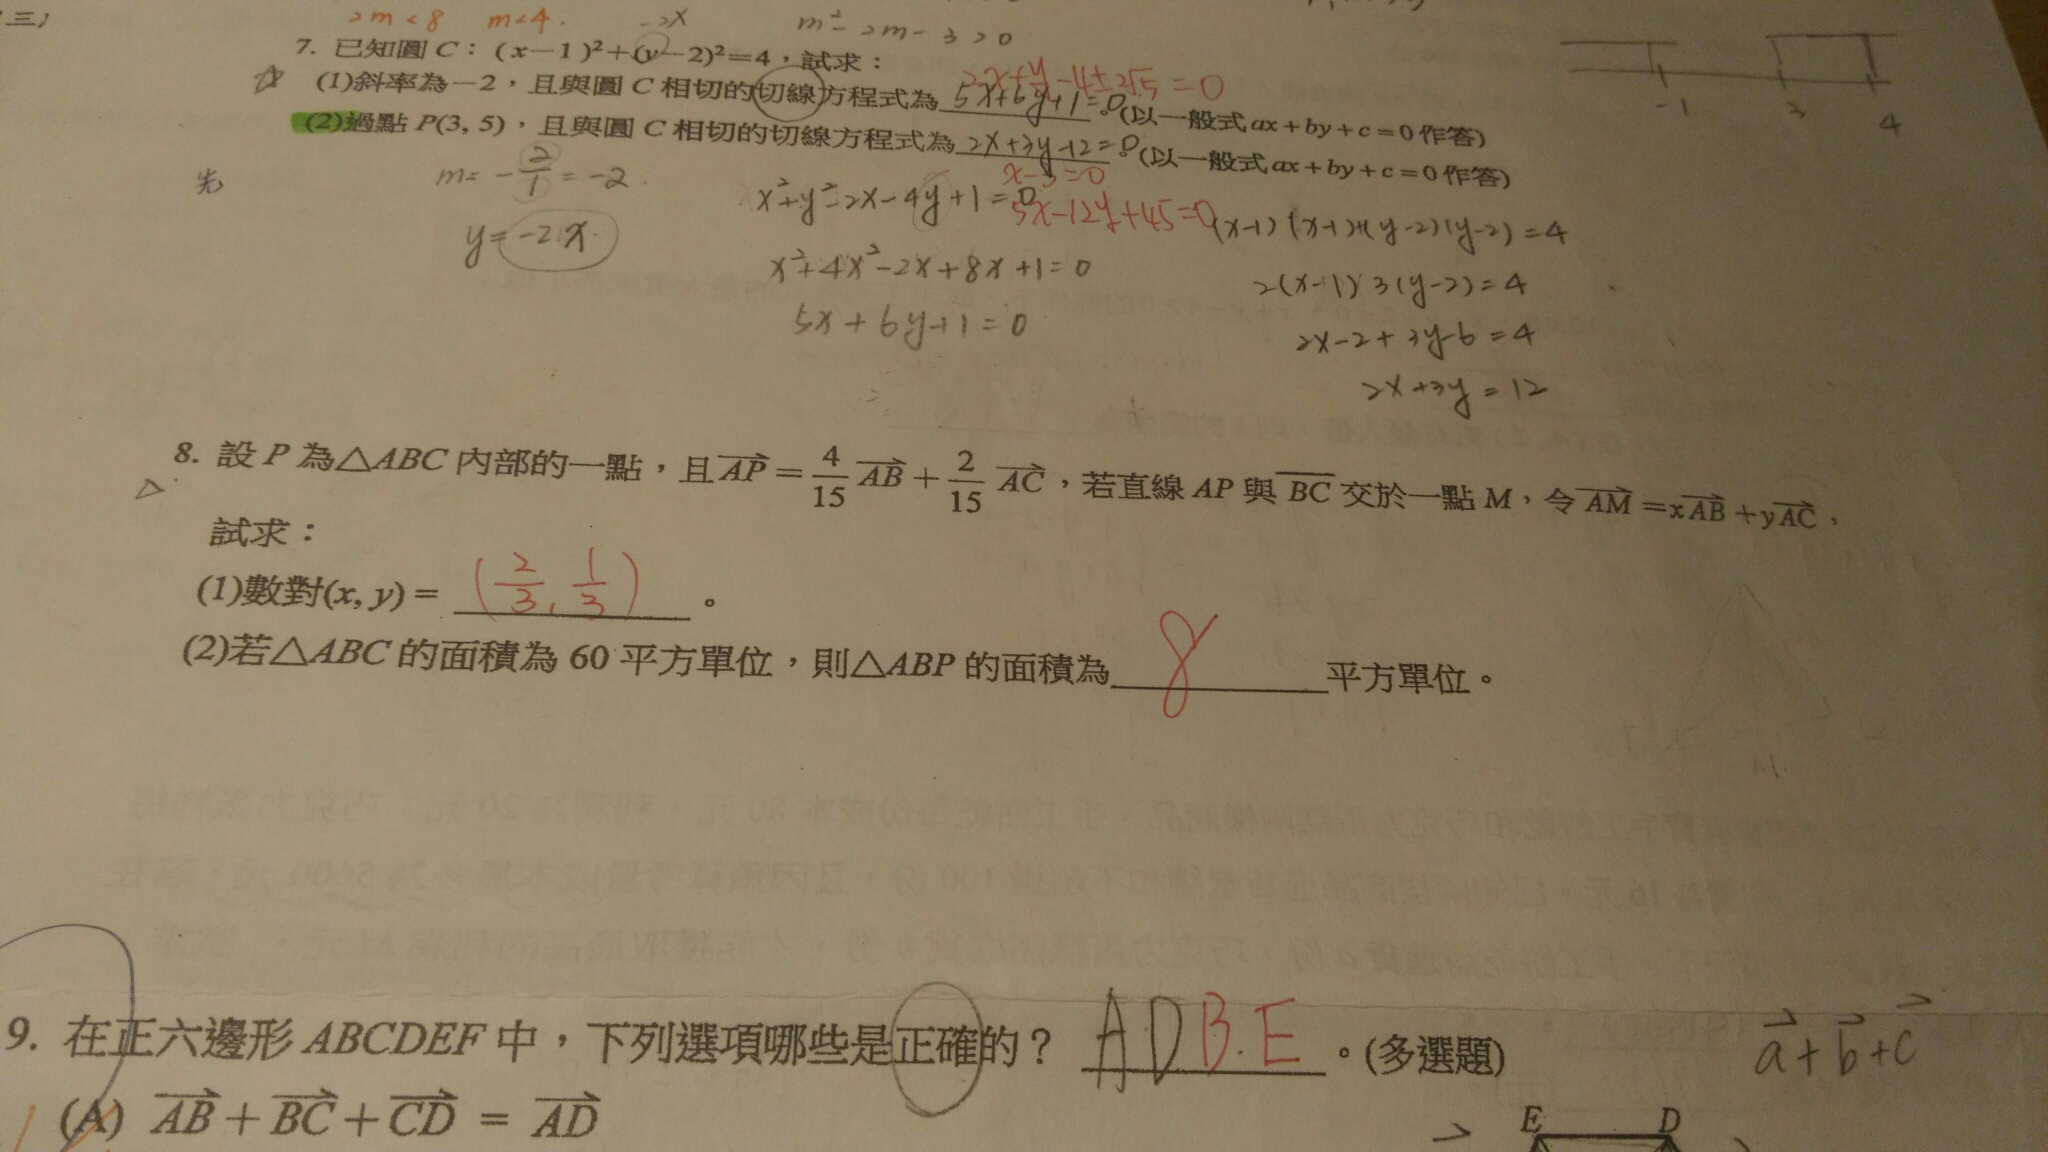 三)
2m<8 m<4.
-2x
m²-2m-3>0
7. 已知圓 C：(x－1)²＋(y－2)²＝4，試求：
2x+y-4±2√5=0
(1)斜率為－2，且與圓 C 相切的切線方程式為 5x+6y+1=0。(以一般式 ax＋by＋c＝0 作答)
(2)過點 P(3, 5)，且與圓 C 相切的切線方程式為 2x+3y-12=0。(以一般式 ax＋by＋c＝0 作答)
x-3=0
5x-12y+45=0
先
m=-2/1=-2.
y=-2x.
x²+y²-2x-4y+1=0
x²+4x²-2x+8x+1=0
5x+6y+1=0
(x-1)(x-1)+(y-2)(y-2)=4
2(x-1)3(y-2)=4
2x-2+3y-6=4
2x+3y=12
-1 3 4
8. 設 P 為△ABC 內部的一點，且 AP⃗＝4/15 AB⃗＋2/15 AC⃗，若直線 AP 與 B̅C̅ 交於一點 M，令 AM⃗＝xAB⃗＋yAC⃗，
試求：
(1)數對(x, y)＝ (2/3, 1/3) 。
(2)若△ABC 的面積為 60 平方單位，則△ABP 的面積為 8 平方單位。
9. 在正六邊形 ABCDEF 中，下列選項哪些是正確的？ ADB.E 。(多選題)
a⃗+b⃗+c⃗
(A) AB⃗＋BC⃗＋CD⃗ ＝ AD⃗
E D